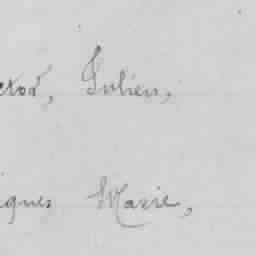 ctor, Julien,
ques Marie,